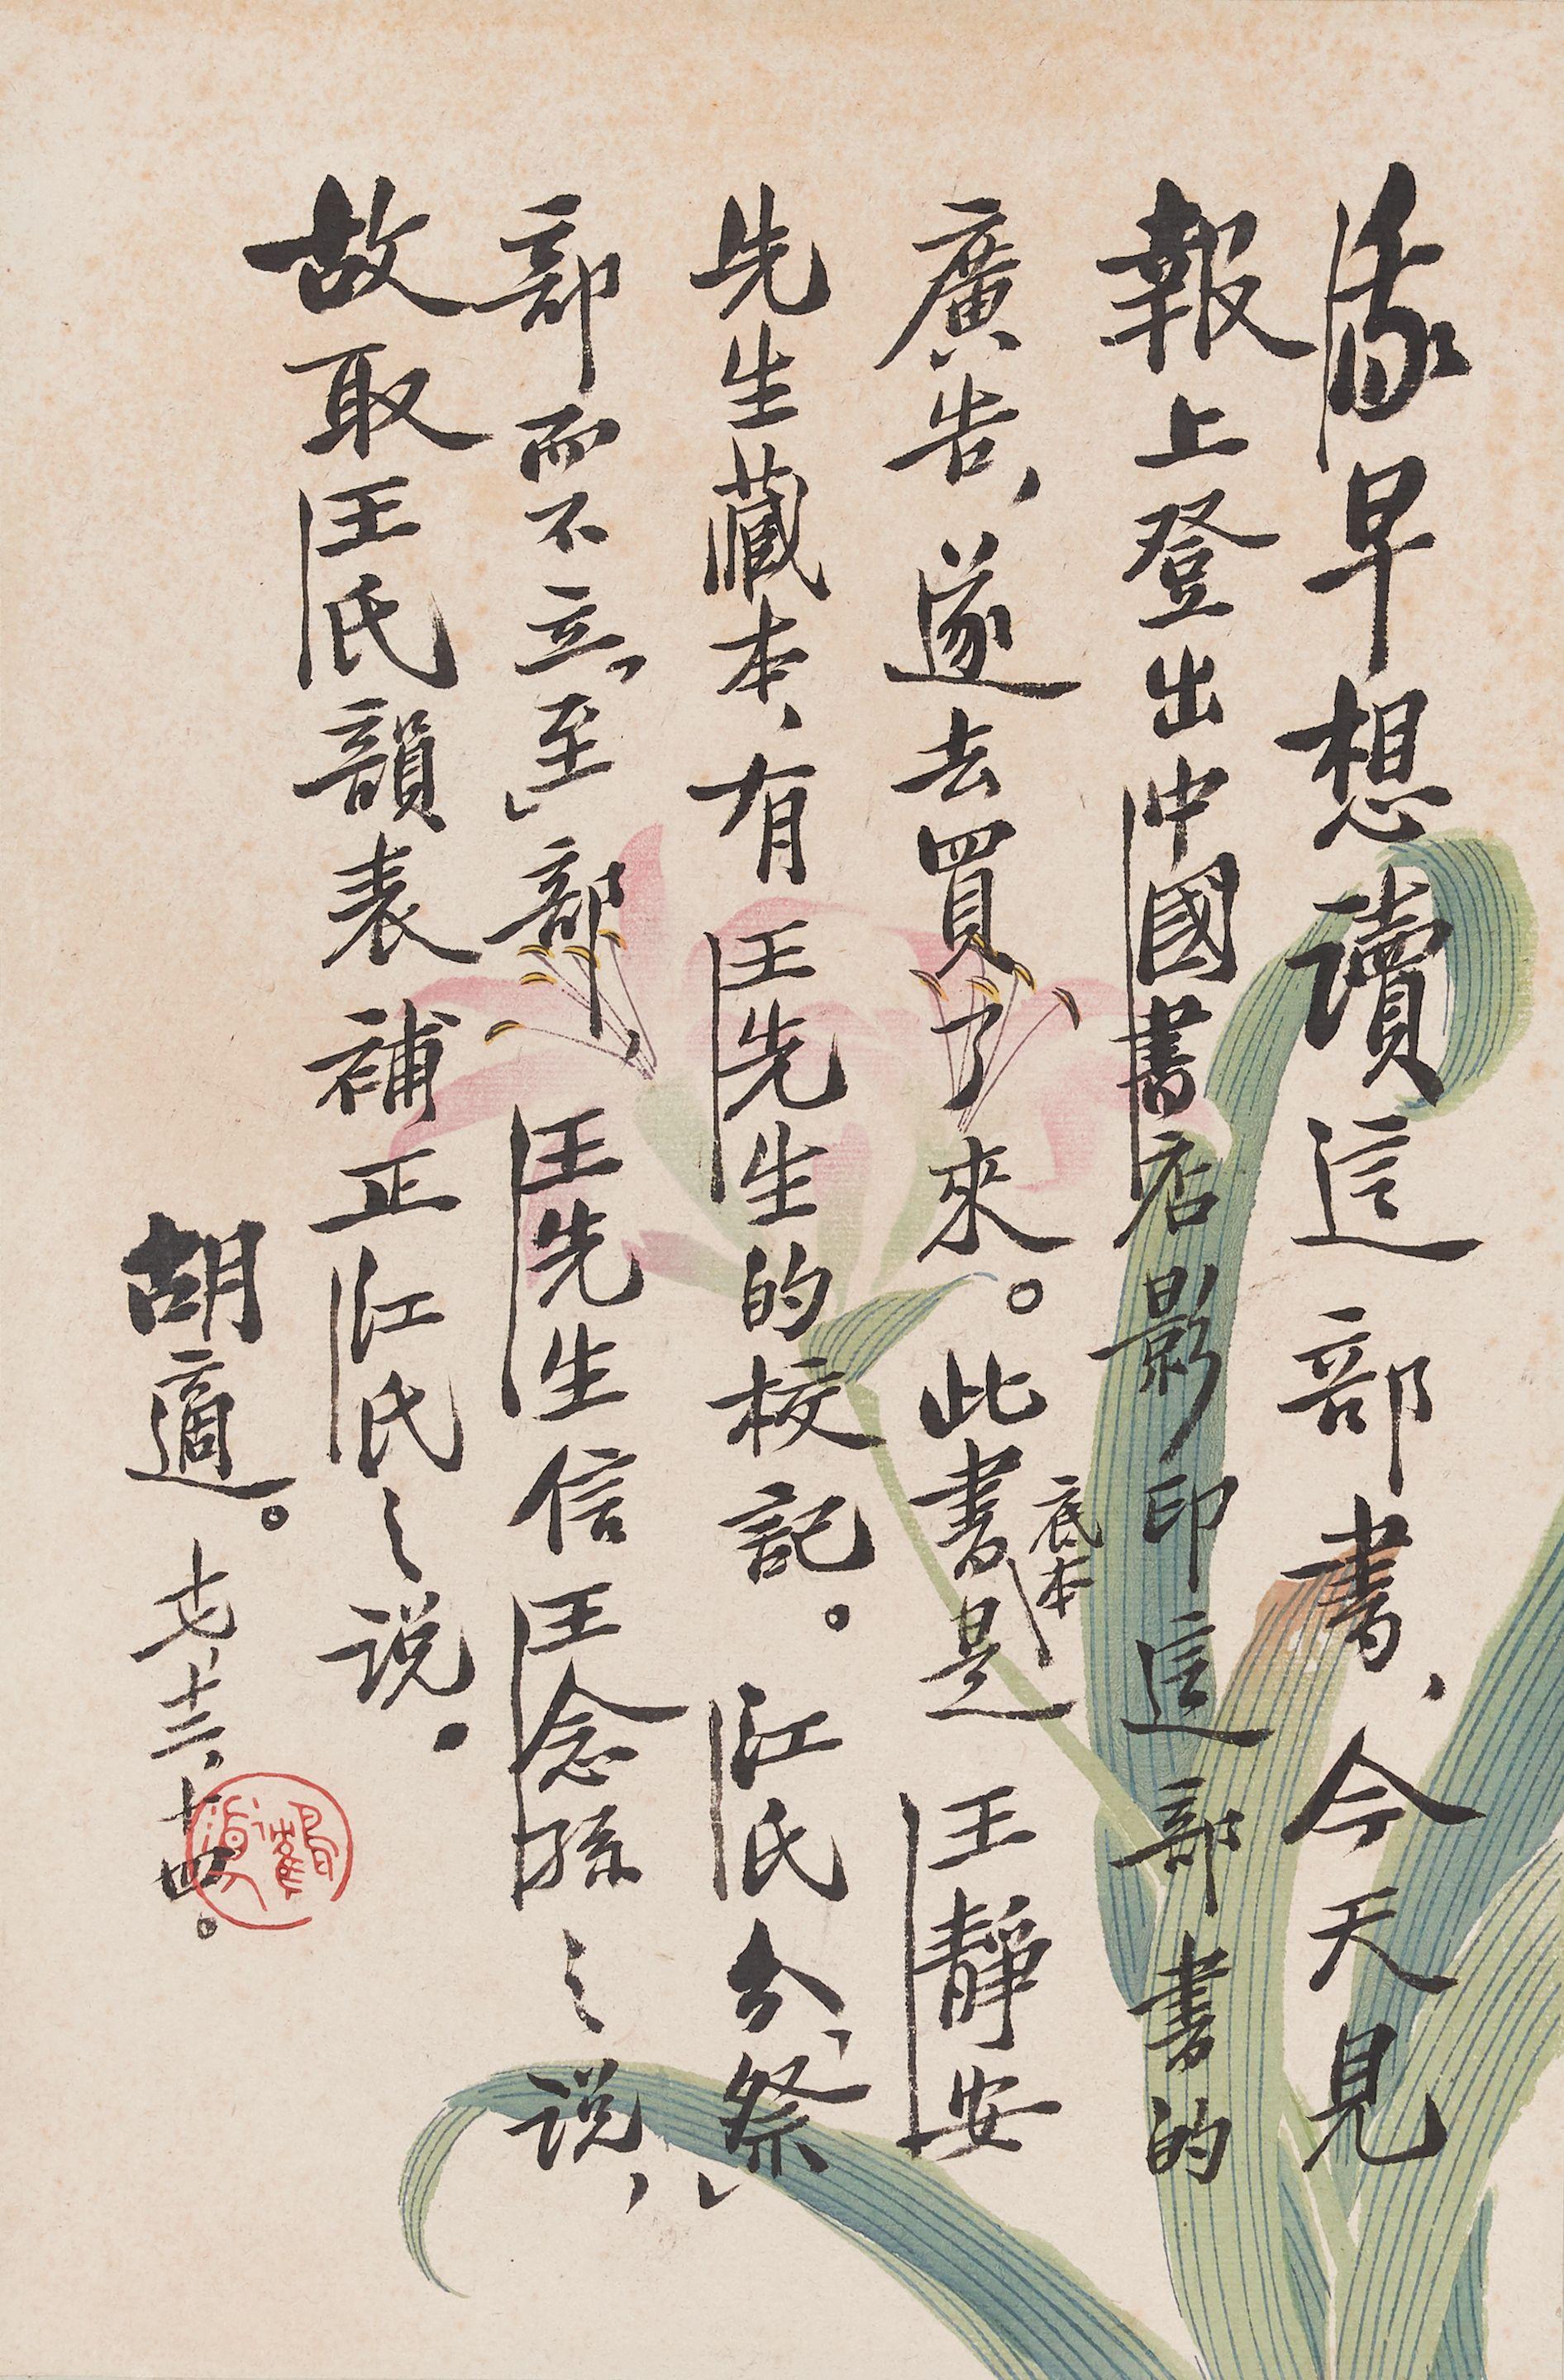 我早想讀這部書，今天見
報上登出中國書店影印這部書的
廣告，遂去買了來。此書底本是王靜安
先生藏本，有王先生的校記。江氏分「祭」
部而不立「至」部，王先生信王念孫之說，
故取王氏韻表補正江氏之說。
胡適。十七，十二，十四。